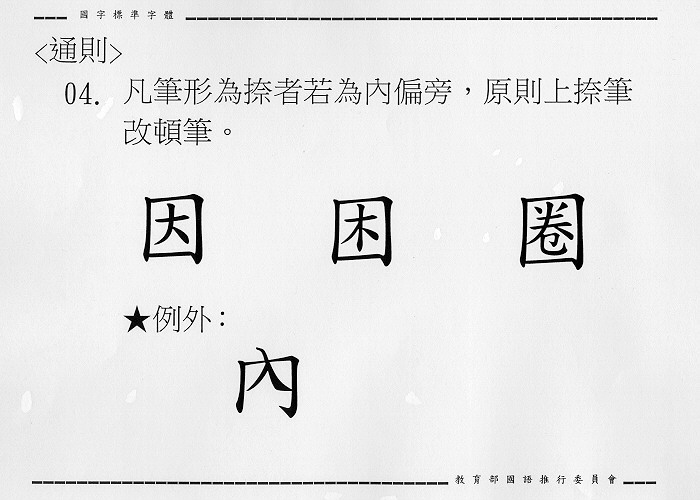 國字標準字體
<通則>
04. 凡筆形為捺者若為內偏旁，原則上捺筆
改頓筆。
因 困 圈
★例外：
內
教育部國語推行委員會